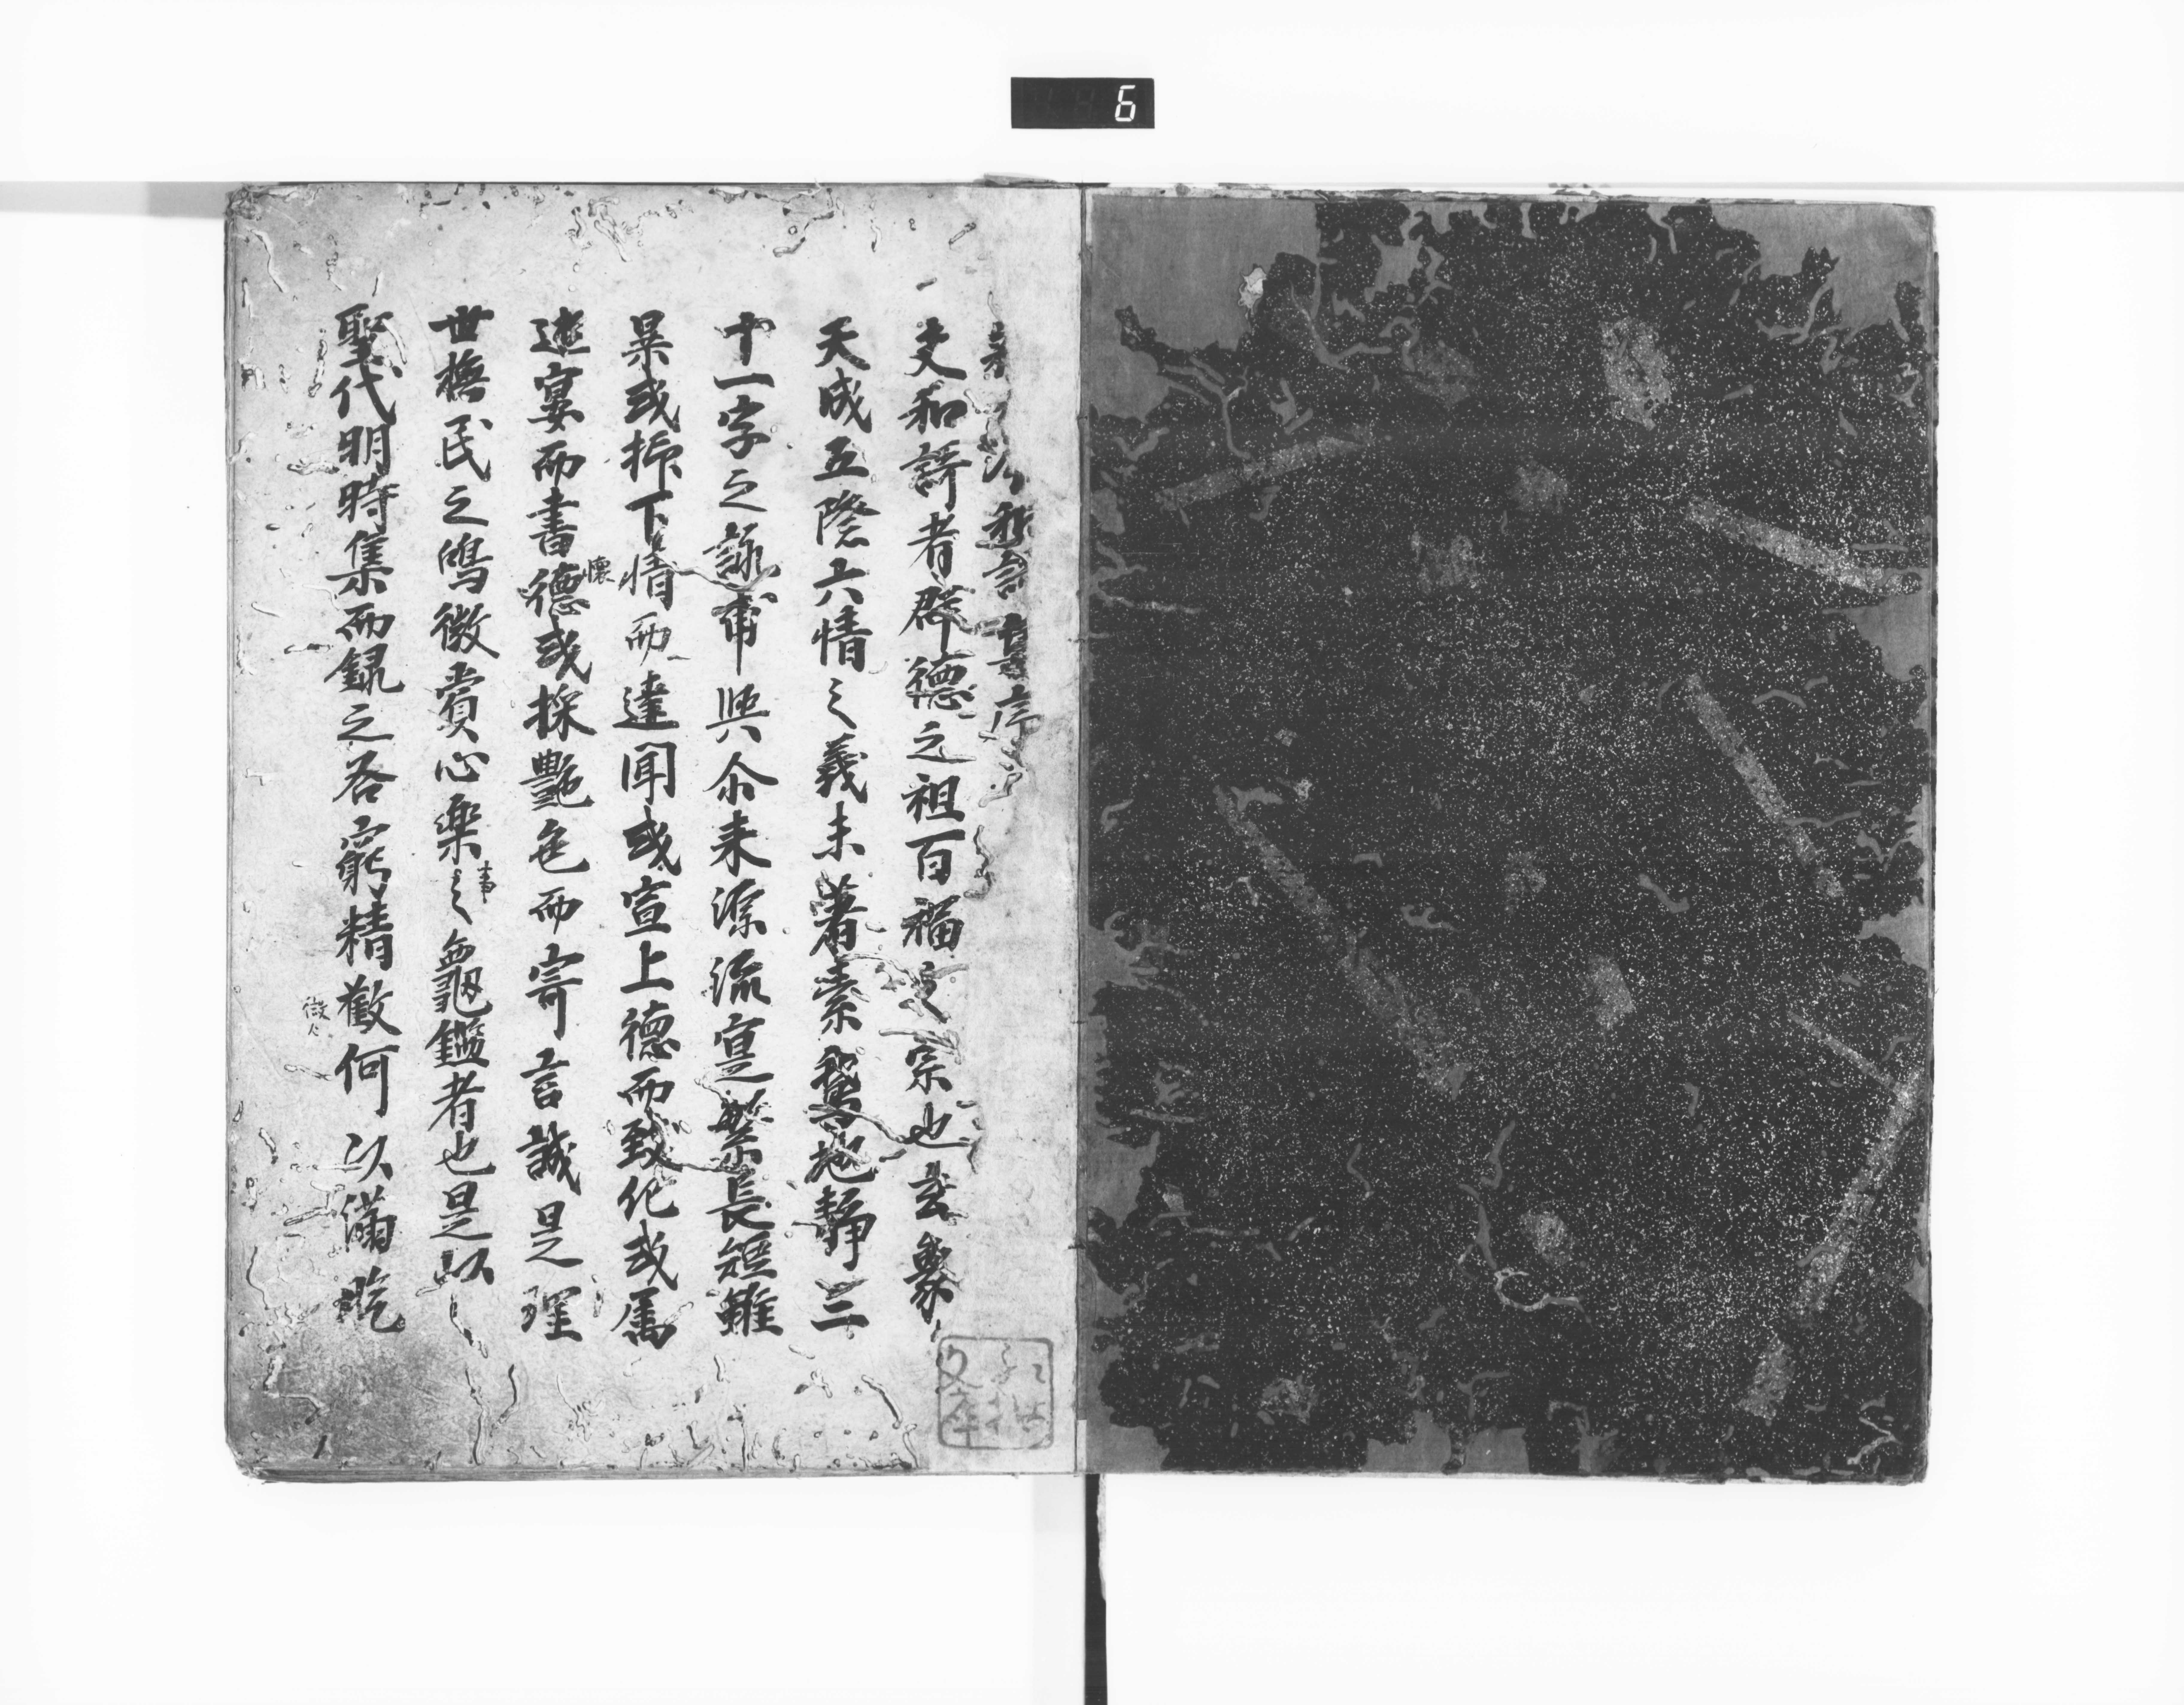 6
新古今和謌集序
夫和謌者群德之祖百福之宗也玄象
天成五際六情之義未著素鵞地静三
十一字之詠甫興尒来源流寔繁長短雖
異或抒下情而達聞或宣上德而致化或属
遊宴而書懷德或採艶色而寄言誠是理
世撫民之鴻徽賞心樂事之龜鑑者也是以
聖代明時集而録之各窮精徵何以漏脱
微